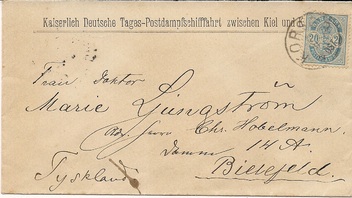 Kaiserlich Deutsche Tages-Postdampfschifffahrt zwischen Kiel und
Frau Doktor
Marie Ljungström
Adr. Herrn Chr. Hobelmann.
Damm 14 A
Bielefeld.
Tyskland